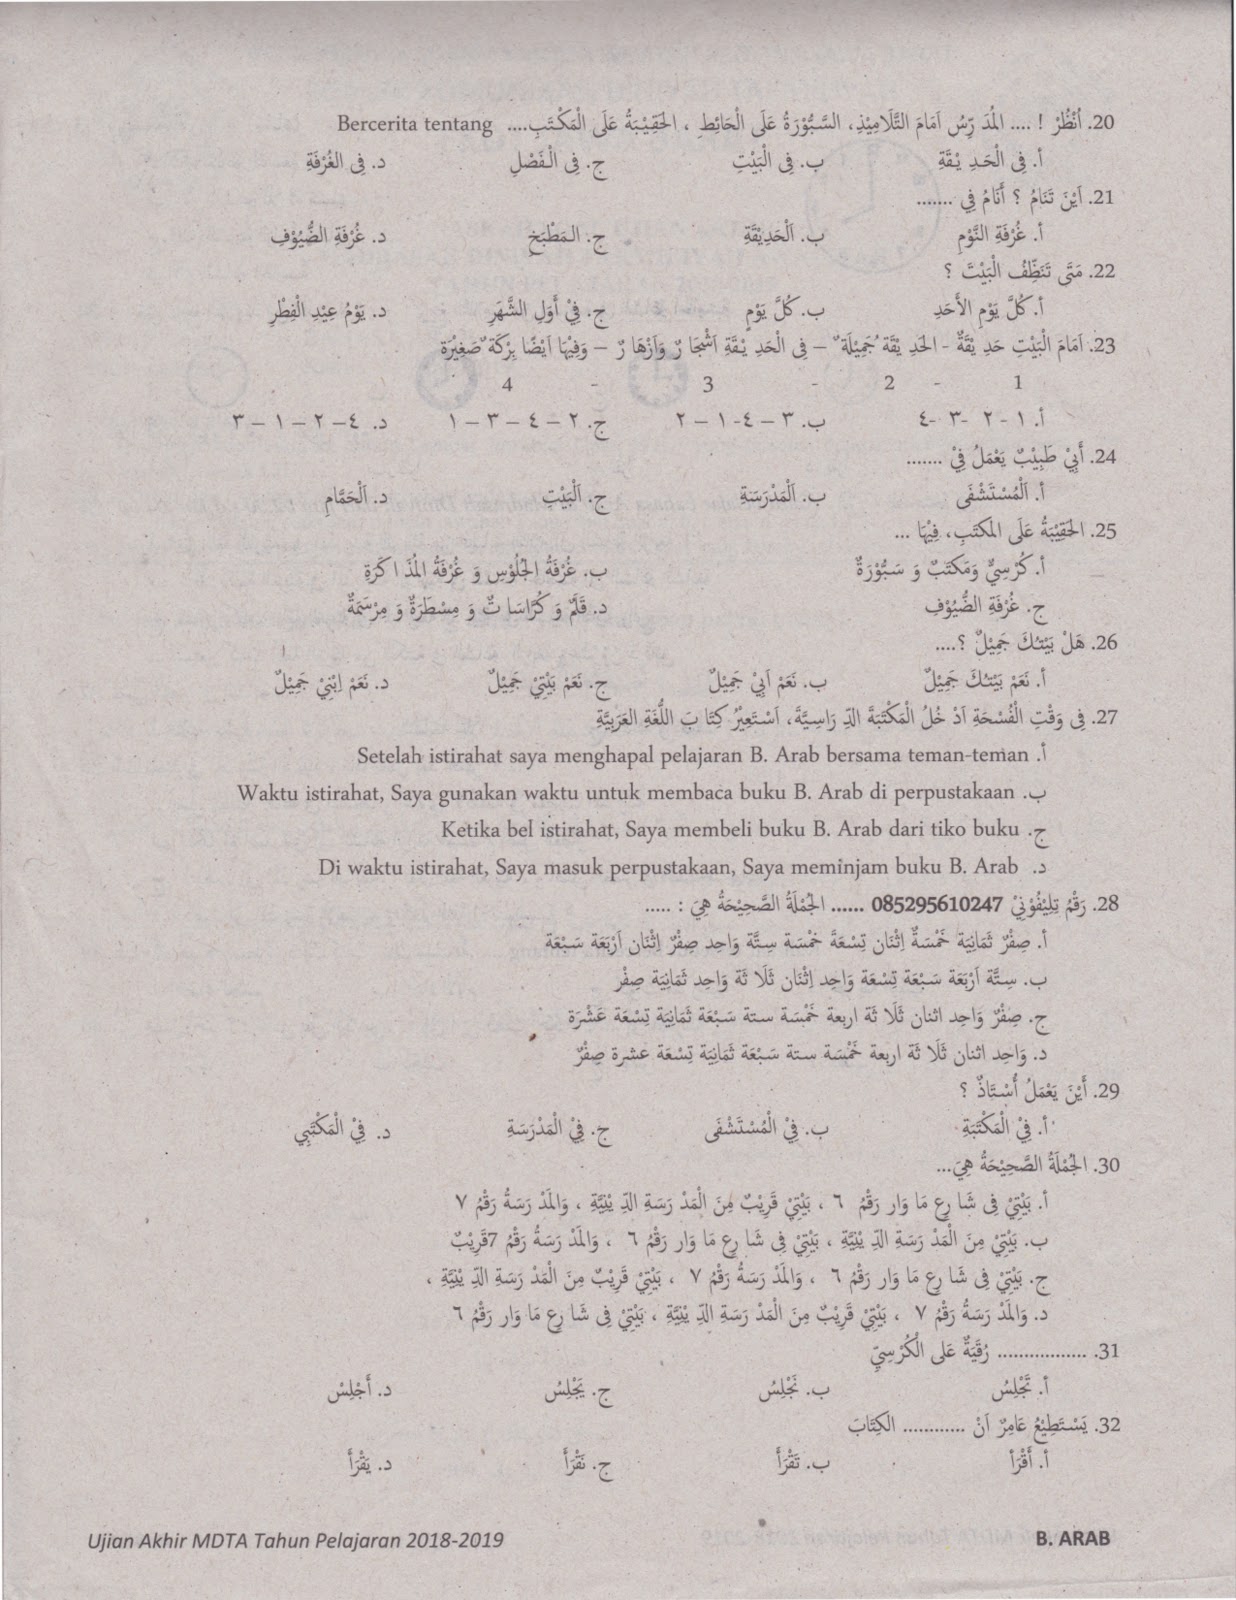 20. اُنْظُرْ ! .... المُدَ رِّسُ اَمَامَ التَّلَامِيْذِ، السَّبُّوْرَةُ عَلَى الْحَائِطِ ، الحَقِيْبَةُ عَلَى الْمَكْتَبِ.... Bercerita tentang
أ. فِى الْحَدِ يْقَةِ ب. فِى الْبَيْتِ ج. فِى الْفَصْلِ د. فِى الغُرْفَةِ
21. اَيْنَ تَنَامُ ؟ أَنَامُ فِي .......
أ. غُرْفَةِ النَّوْمِ ب. اَلْحَدِيْقَةِ ج. المَطْبَخِ د. غُرْفَةِ الضُّيُوْفِ
22. مَتَى تَنَظِّفُ الْبَيْتَ ؟
أ. كُلَّ يَوْمِ الأَحَدِ ب. كُلَّ يَوْمٍ ج. فِيْ أَوَلِ الشَّهَرِ د. يَوْمُ عِيْدِ الْفِطْرِ
23. اَمَامَ الْبَيْتِ حَدِ يْقَةٌ - الحَدِ يْقَةُ جَمِيْلَةٌ – فِى الْحَدِ يْقَةِ اَشْجَا رٌ وَاَزْهَا رٌ – وَفِيْهَا اَيْضًا بِرْكَةٌ صَغِيْرَة
1 - 2 - 3 - 4
أ. ١ - ٢ -٣ -٤ ب. ٣ – ٤ -١ – ٢ ج. ٢ – ٤ – ٣ – ١ د. ٤ – ٢ – ١ – ٣
24. أَبِيْ طَبِيْبٌ يَعْمَلُ فِيْ .......
أ. اَلْمُسْتَشْفَى ب. اَلْمَدْرَسَةِ ج. اَلْبَيْتِ د. اَلْحَمَّامِ
25. الحَقِيْبَةُ عَلَى المَكتَبِ، فِيْهَا ...
أ. كُرْسِيٌّ وَمَكتَبٌ وَ سَبُّوْرَةٌ ب. غُرْفَةُ الجُلُوْسِ وَ غُرْفَةُ المُذَا كَرَةِ
ج. غُرْفَةِ الضُّيُوْفِ د. قَلَمٌ وَ كُرَّاسَا تٌ وَ مِسْطَرَةٌ وَ مِرْسَمَةٌ
26. هَلْ بَيْتُكَ جَمِيْلٌ ؟....
أ. نَعَمْ بَيْتُكَ جَمِيْلٌ ب. نَعَمْ اَبِيْ جَمِيْلٌ ج. نَعَمْ بَيْتِيْ جَمِيْلٌ د. نَعَمْ اِبْنِيْ جَمِيْلٌ
27. فِى وَقْتِ الْفُسْحَةِ اَدْ خُلُ الْمَكْتَبَةَ الدِّ رَاسِيَّةَ، اَسْتَعِيْرُ كِتَا بَ اللُّغَةِ العَرَبِيَّةِ
أ. Setelah istirahat saya menghapal pelajaran B. Arab bersama teman-teman
ب. Waktu istirahat, Saya gunakan waktu untuk membaca buku B. Arab di perpustakaan
ج. Ketika bel istirahat, Saya membeli buku B. Arab dari tiko buku
د. Di waktu istirahat, Saya masuk perpustakaan, Saya meminjam buku B. Arab
28. رَقْمُ تِلِيْفُوْنِيْ 085295610247 ...... الجُمْلَةُ الصَّحِيْحَةُ هِيَ : .....
أ. صِفْرٌ ثَمَانِيَة خَمْسَةٌ اِثْنَان تِسْعَةَ خَمْسَة سِتَّة وَاحِد صِفْرٌ اِثْنَان اَرْبَعَة سَبْعَة
ب. سِتَّة اَرْبَعَة سَبْعَة تِسْعَة وَاحِد اِثْنَان ثَلَا ثَة وَاحِد ثَمَانِيَة صِفْر
ج. صِفْرٌ وَاحِد اثنان ثَلَا ثَة اربعة خَمْسَة ستة سَبْعَة ثَمَانِيَة تِسْعَة عَشْرَة
د. وَاحِد اثنان ثَلَا ثَة اربعة خَمْسَة ستة سَبْعَة ثَمَانِيَة تِسْعَة عشرة صِفْرٌ
29. أَيْنَ يَعْمَلُ أُسْتَاذٌ ؟
أ. فِيْ الْمَكْتَبَةِ ب. فِيْ الْمُسْتَشْفَى ج. فِيْ الْمَدْرَسَةِ د. فِيْ الْمَكْتَبِي
30. الجُمْلَةُ الصَّحِيْحَةُ هِيَ...
أ. بَيْتِيْ فِى شَا رِع مَا وَار رَقْمُ ٦ ، بَيْتِيْ قَرِيْبٌ مِنَ الْمَدْ رَسَةِ الدِّ يْنِيَّةِ ، وَالمَدْ رَسَةُ رَقْمُ ٧
ب. بَيْتِيْ مِنَ الْمَدْ رَسَةِ الدِّ يْنِيَّةِ ، بَيْتِيْ فِى شَا رِع مَا وَار رَقْمُ ٦ ، وَالمَدْ رَسَةُ رَقْمُ 7قَرِيْبٌ
ج. بَيْتِيْ فِى شَا رِع مَا وَار رَقْمُ ٦ ، وَالمَدْ رَسَةُ رَقْمُ ٧ ، بَيْتِيْ قَرِيْبٌ مِنَ الْمَدْ رَسَةِ الدِّ يْنِيَّةِ ،
د. وَالمَدْ رَسَةُ رَقْمُ ٧ ، بَيْتِيْ قَرِيْبٌ مِنَ الْمَدْ رَسَةِ الدِّ يْنِيَّةِ ، بَيْتِيْ فِى شَا رِع مَا وَار رَقْمُ ٦
31. ................. رُقَيَةٌ عَلى الْكُرْسِيِّ
أ. تَجْلِسُ ب. نَجْلِسُ ج. يَجْلِسُ د. أَجْلِسُ
32. يَسْتَطِيْعُ عَامِرٌ اَنْ ............ الكِتَابَ
أ. أَقْرَأ ب. تَقْرَأَ ج. نَقْرَأَ د. يَقْرَأَ
Ujian Akhir MDTA Tahun Pelajaran 2018-2019 B. ARAB